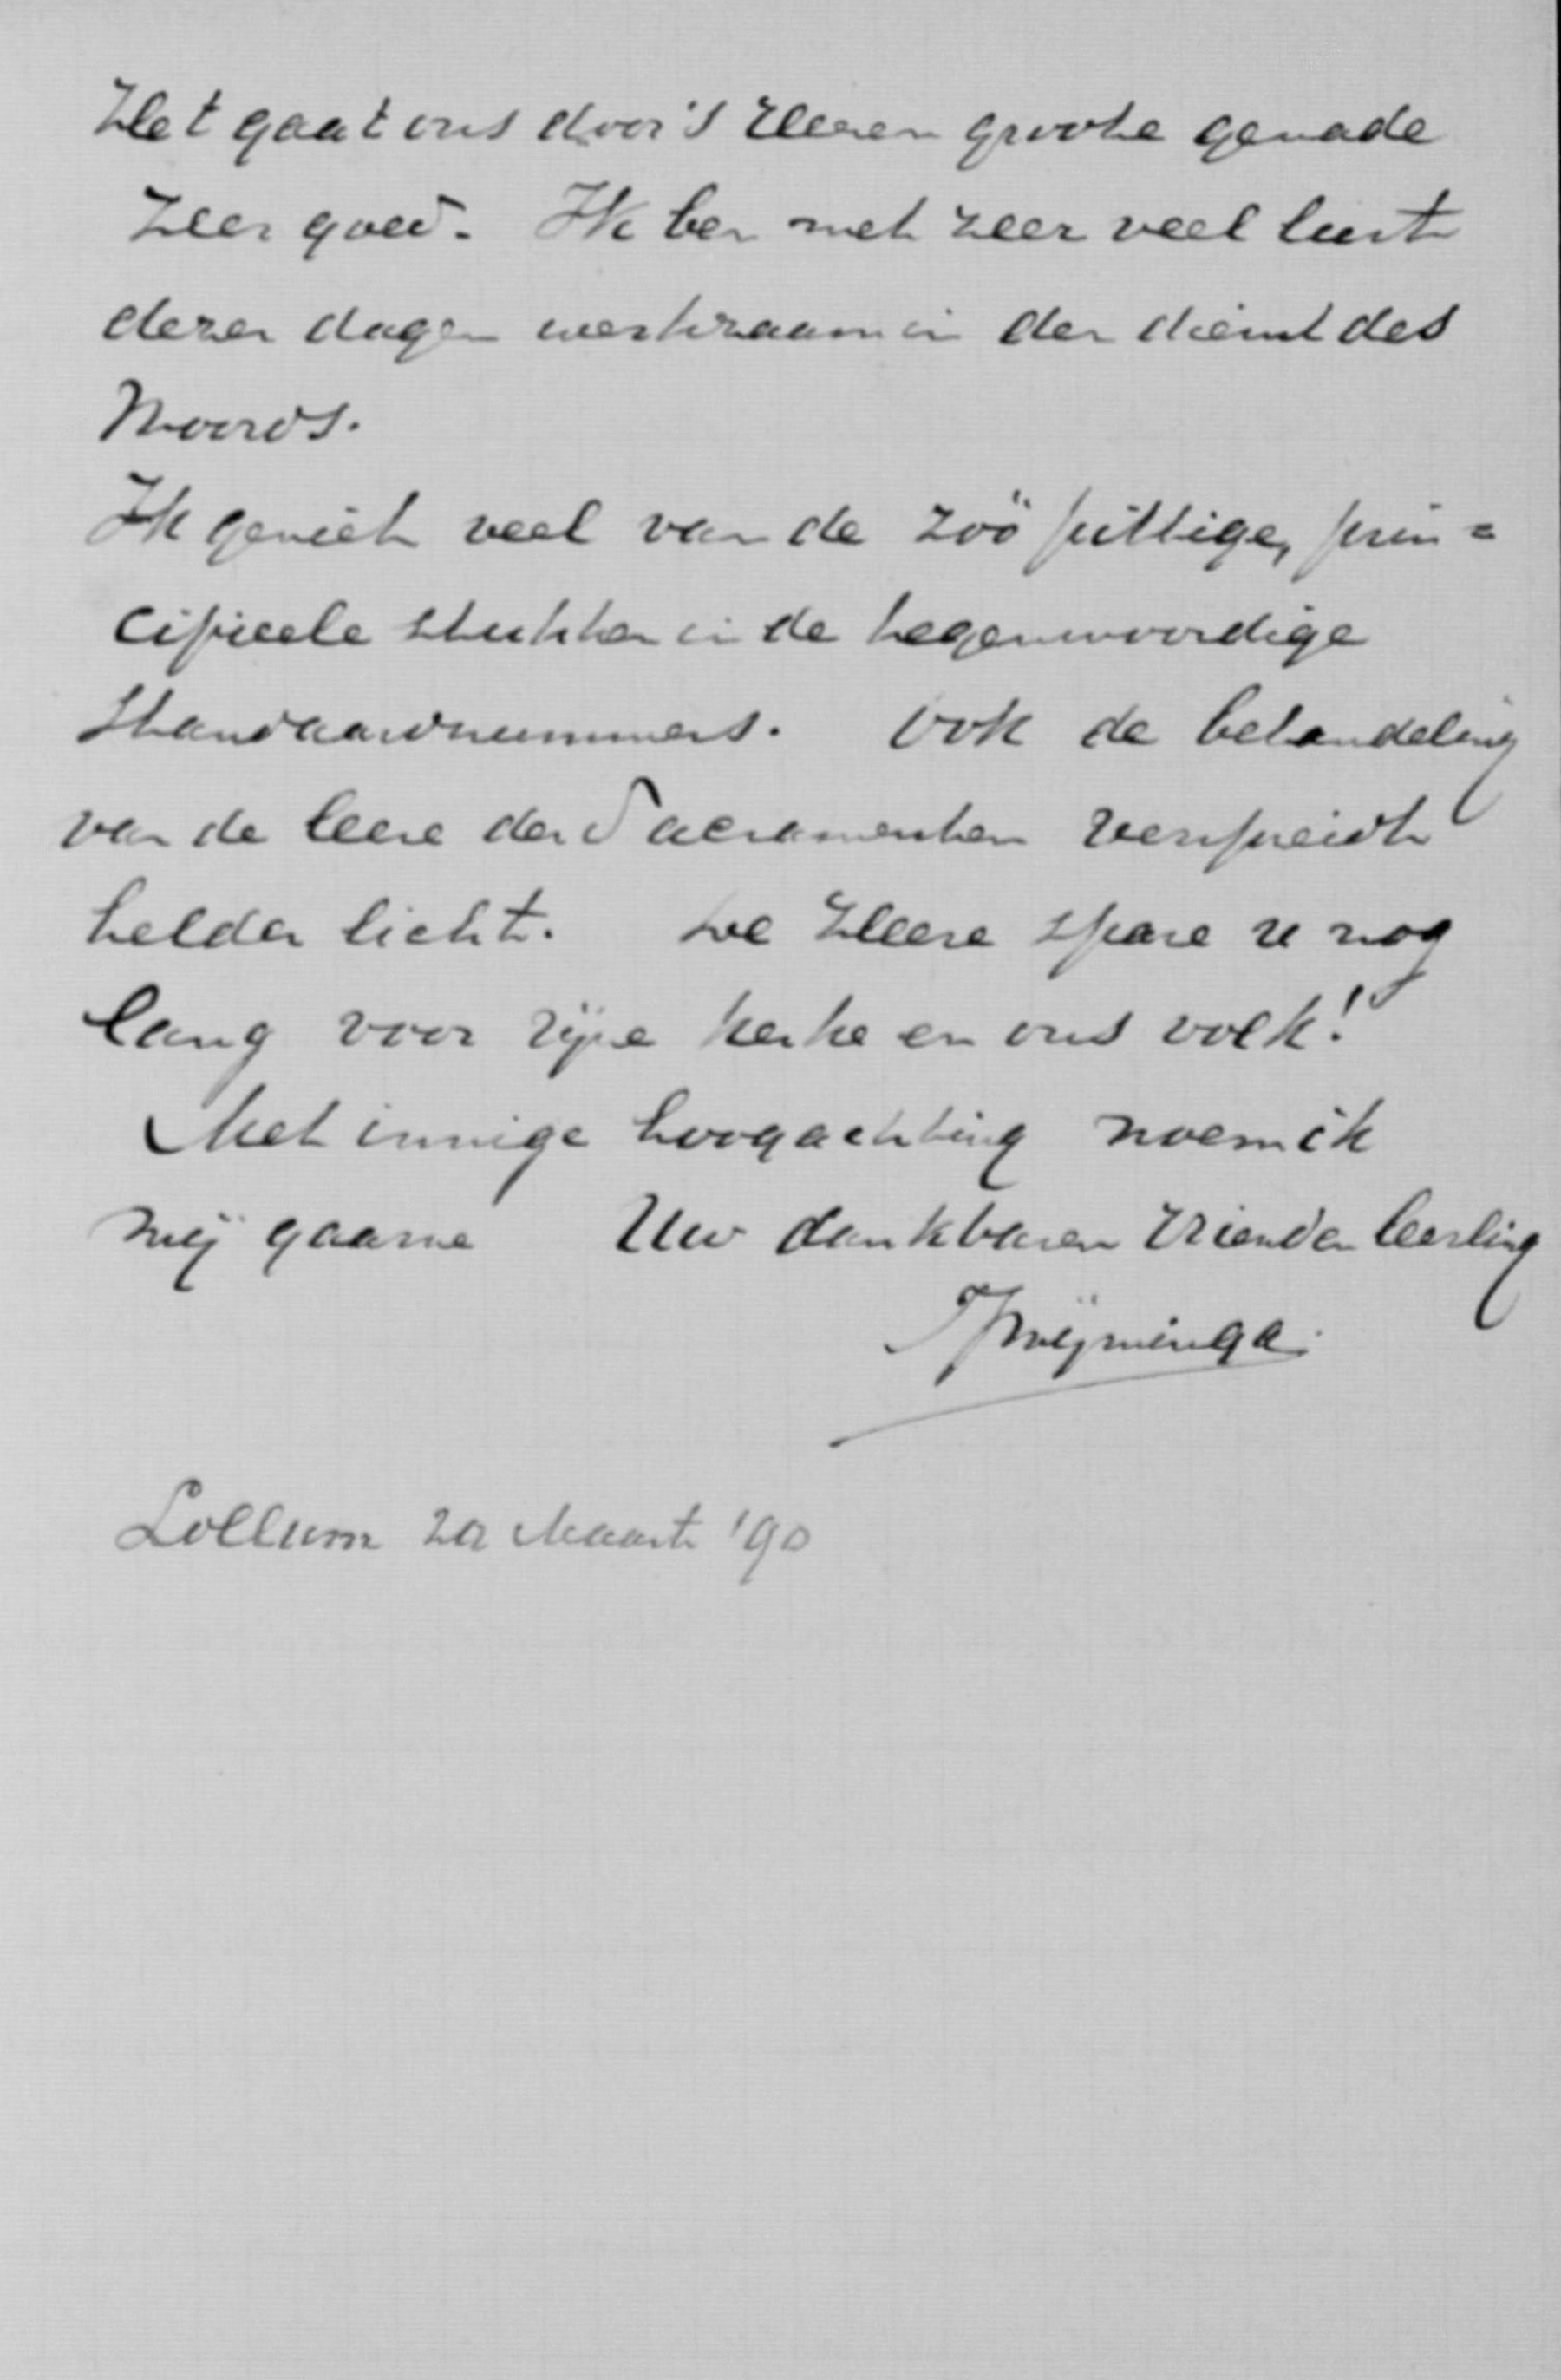 Het gaat ons door 's Heeren groote genade
zeer goed. Ik ben met zeer veel lust
dezer dagen werkzaam in den dienst des
Woords.
Ik geniet veel van de zoo pittige, prin=
cipieele stukken in de tegenwoordige
Standaardnummers. Ook de behandeling
van de leere der Sacramenten verspreidt
helder licht. De Heere spare u nog
lang voor zijne kerke en ons volk!
Met innige hoogachting noem ik
mij gaarne Uw dankbaren vriend en leerling
Lollum Maart '90